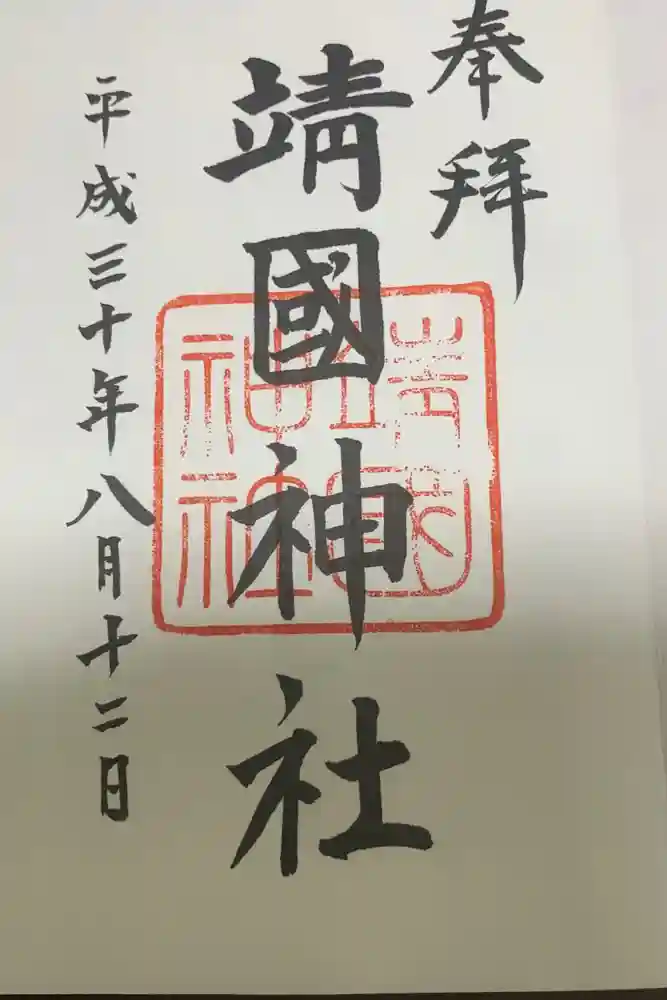 奉拝
靖國神社
靖國神社
平成三十年八月十二日